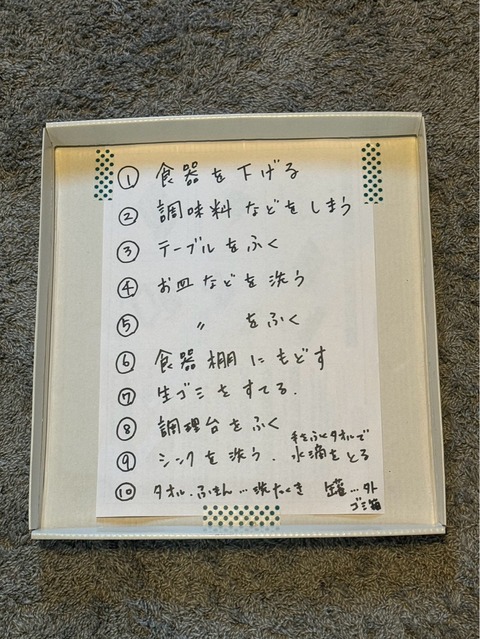 ① 食器を下げる
② 調味料などをしまう
③ テーブルをふく
④ お皿などを洗う
⑤ 〃 をふく
⑥ 食器棚にもどす
⑦ 生ゴミをすてる.
⑧ 調理台をふく
手をふくタオルで
⑨ シンクを洗う. 水滴をとる
⑩ タオル.ふきん…洗たくき 缶…外
ゴミ箱